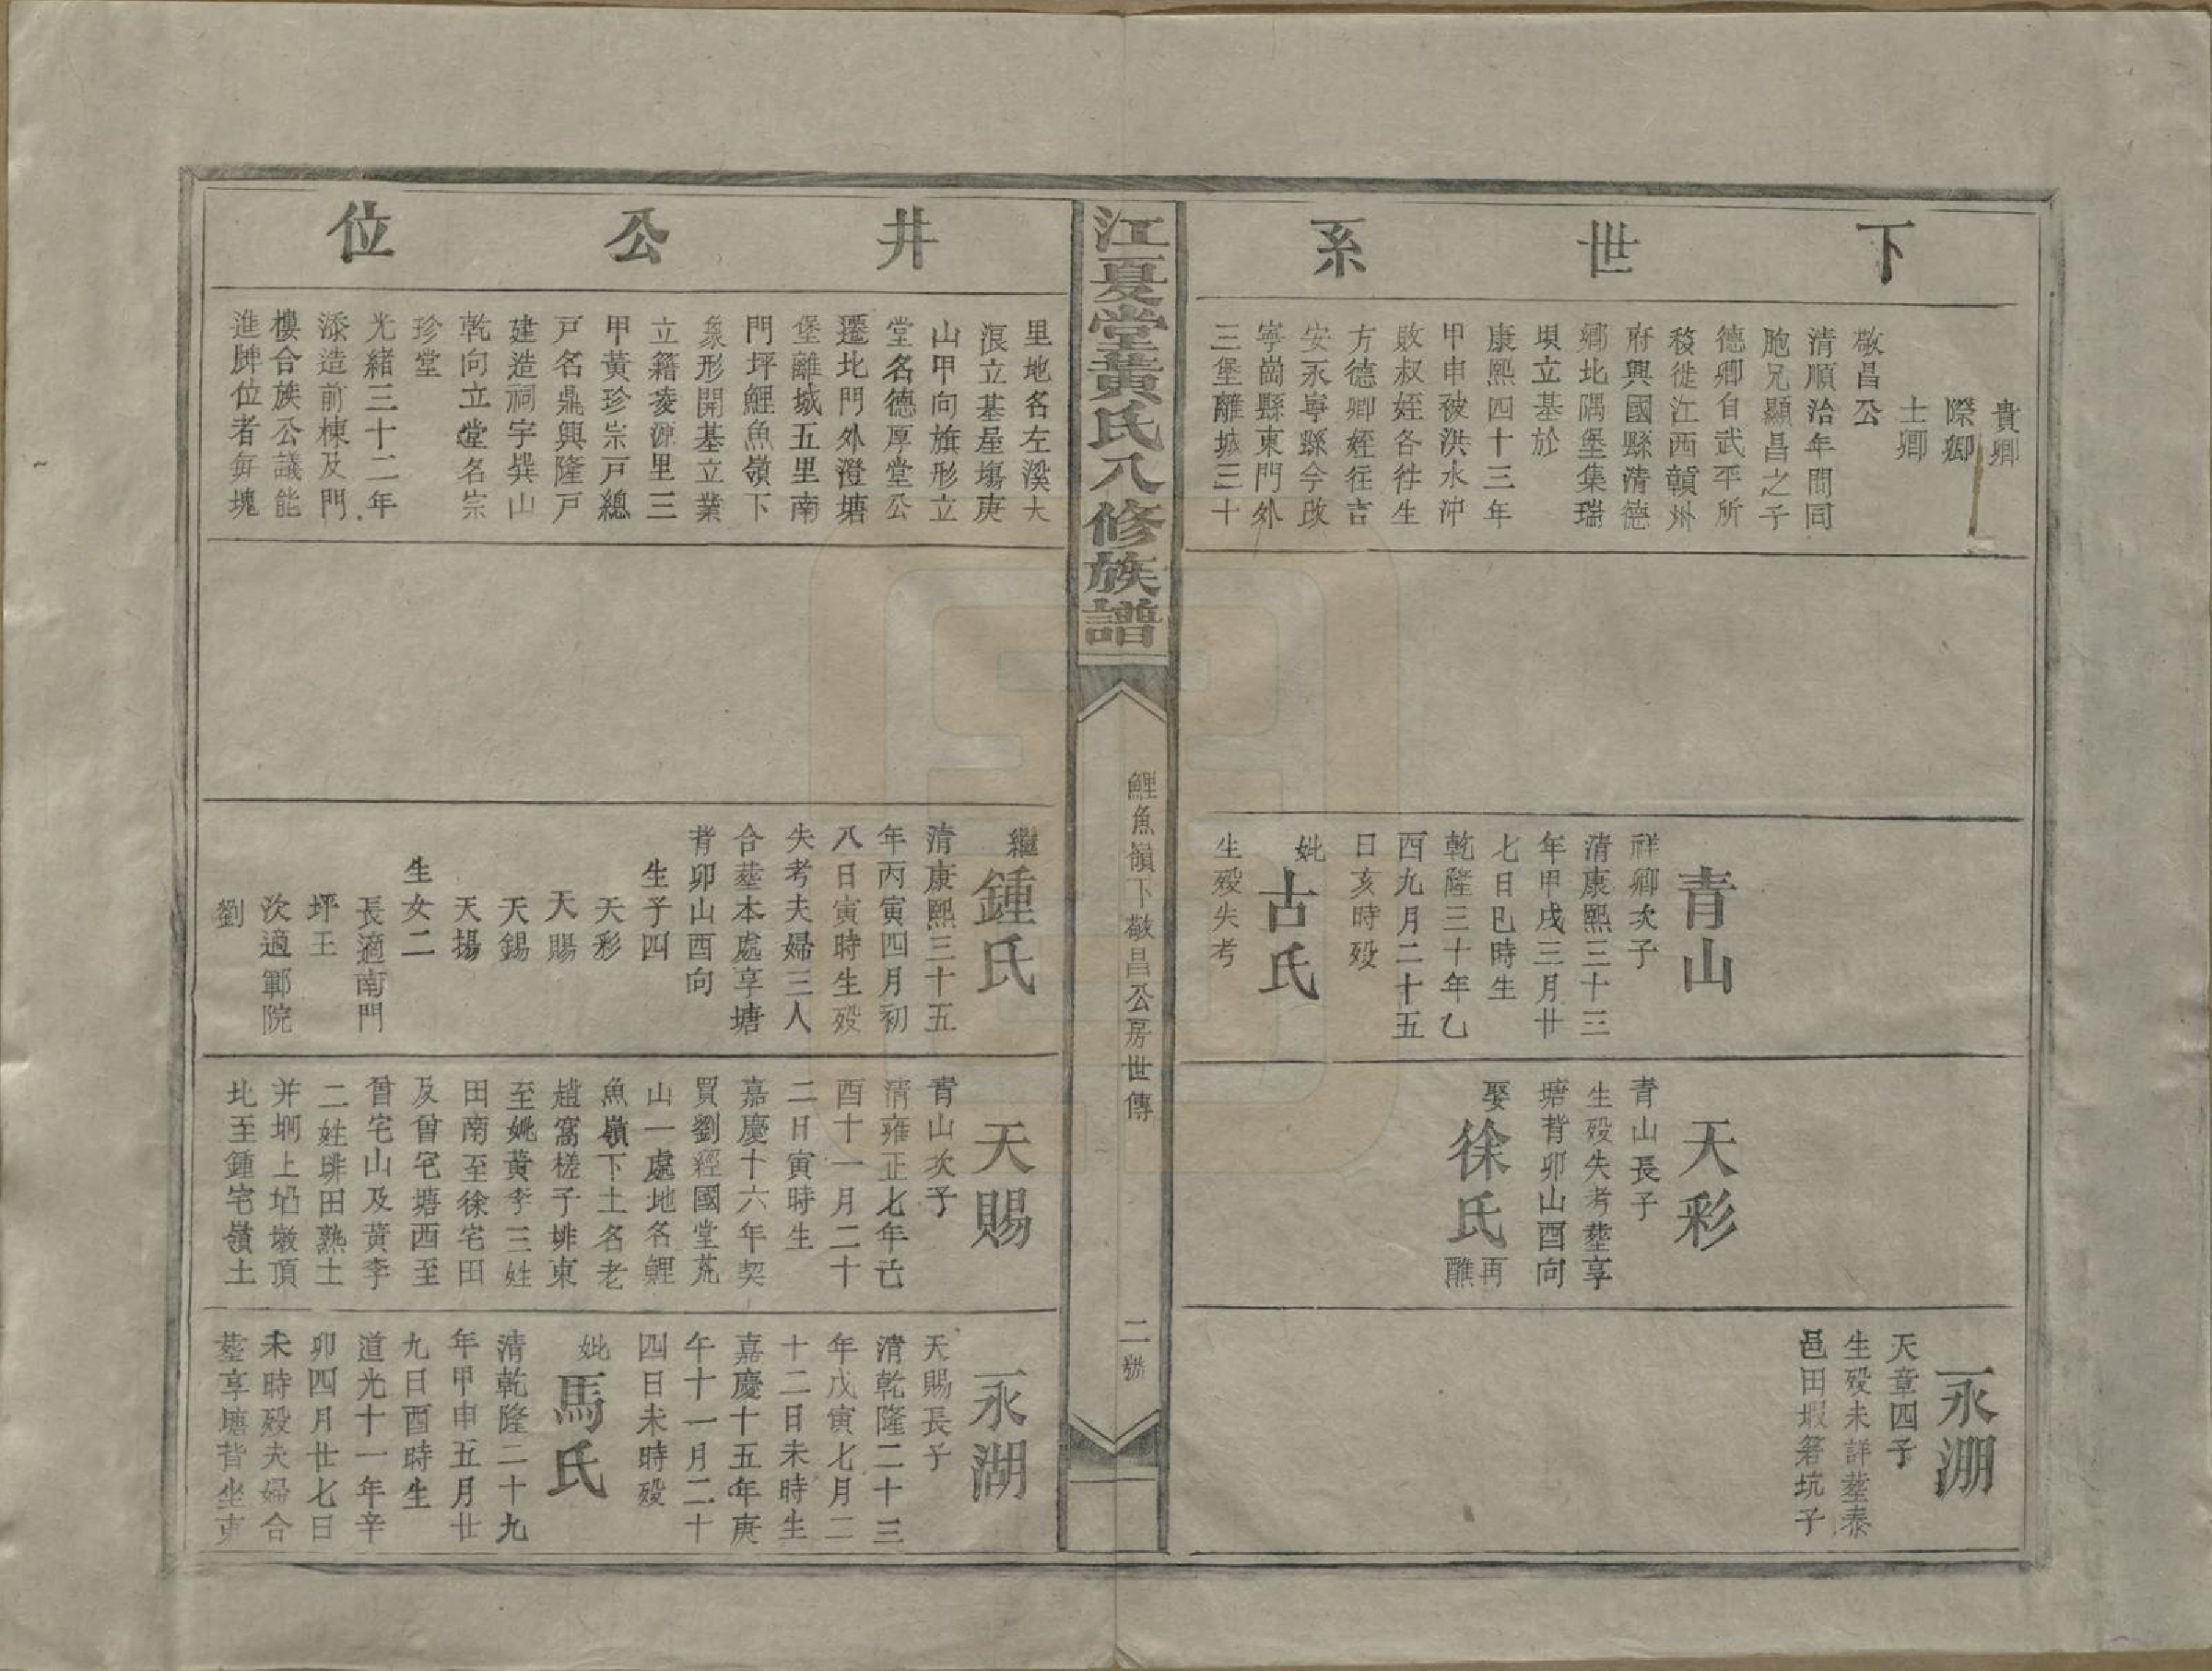 下世系
貴卿
際卿
士卿
敬昌公
清順治年間同
胞兄顯昌之子
德卿自武平所
移徙江西贛州
府興國縣清德
鄉北隅堡集瑞
垻立基於
康熙四十三年
甲申被洪水冲
敗叔姪各徃生
方德卿姪往吉
安永寧縣今改
寧崗縣東門外
三堡離城三十
青山
祥卿次子
清康熙三十三
年甲戌三月廿
七日巳時生
乾隆三十年乙
酉九月二十五
日亥時殁
妣古氏
生殁失考
天彩
青山長子
生殁失考塟享
塘背卯山酉向
娶徐氏再
醮
永淜
天章四子
生殁未詳塟泰
邑田塅箬坑子
江夏堂黄氏八修族譜
鯉魚嶺下敬昌公房世傳
二號
井公位
里地名左溪大
浪立基星塲庚
山甲向旗形立
堂名德厚堂公
遷北門外澄塘
堡離城五里南
門坪鯉魚嶺下
象形開基立業
立籍凌源里三
甲黃珍宗戸總
戸名鼎興隆戸
建造祠宇巽山
乾向立堂名宗
珍堂
光緒三十二年
添造前棟及門
樓合族公議能
進牌位者每塊
繼鍾氏
清康熙三十五
年丙寅四月初
八日寅時生殁
失考夫婦三人
合塟本處享塘
背卯山酉向
生子四
天彩
天賜
天錫
天揚
生女二
長適南門
坪王
次適鄆院
劉
天賜
青山次子
清雍正七年己
酉十一月二十
二日寅時生
嘉慶十六年契
買劉經國堂荒
山一處地名鯉
魚嶺下土名老
趙窩槎子排東
至姚黃李三姓
田南至徐宅田
及曾宅塘西至
曾宅山及黃李
二姓排田熟土
并垇上墦墩頂
北至鍾宅嶺土
永湖
天賜長子
清乾隆二十三
年戊寅七月二
十二日未時生
嘉慶十五年庚
午十一月二十
四日未時殁
妣馬氏
清乾隆二十九
年甲申五月廿
九日酉時生
道光十一年辛
卯四月廿七日
未時殁夫婦合
塟享塘背坐東